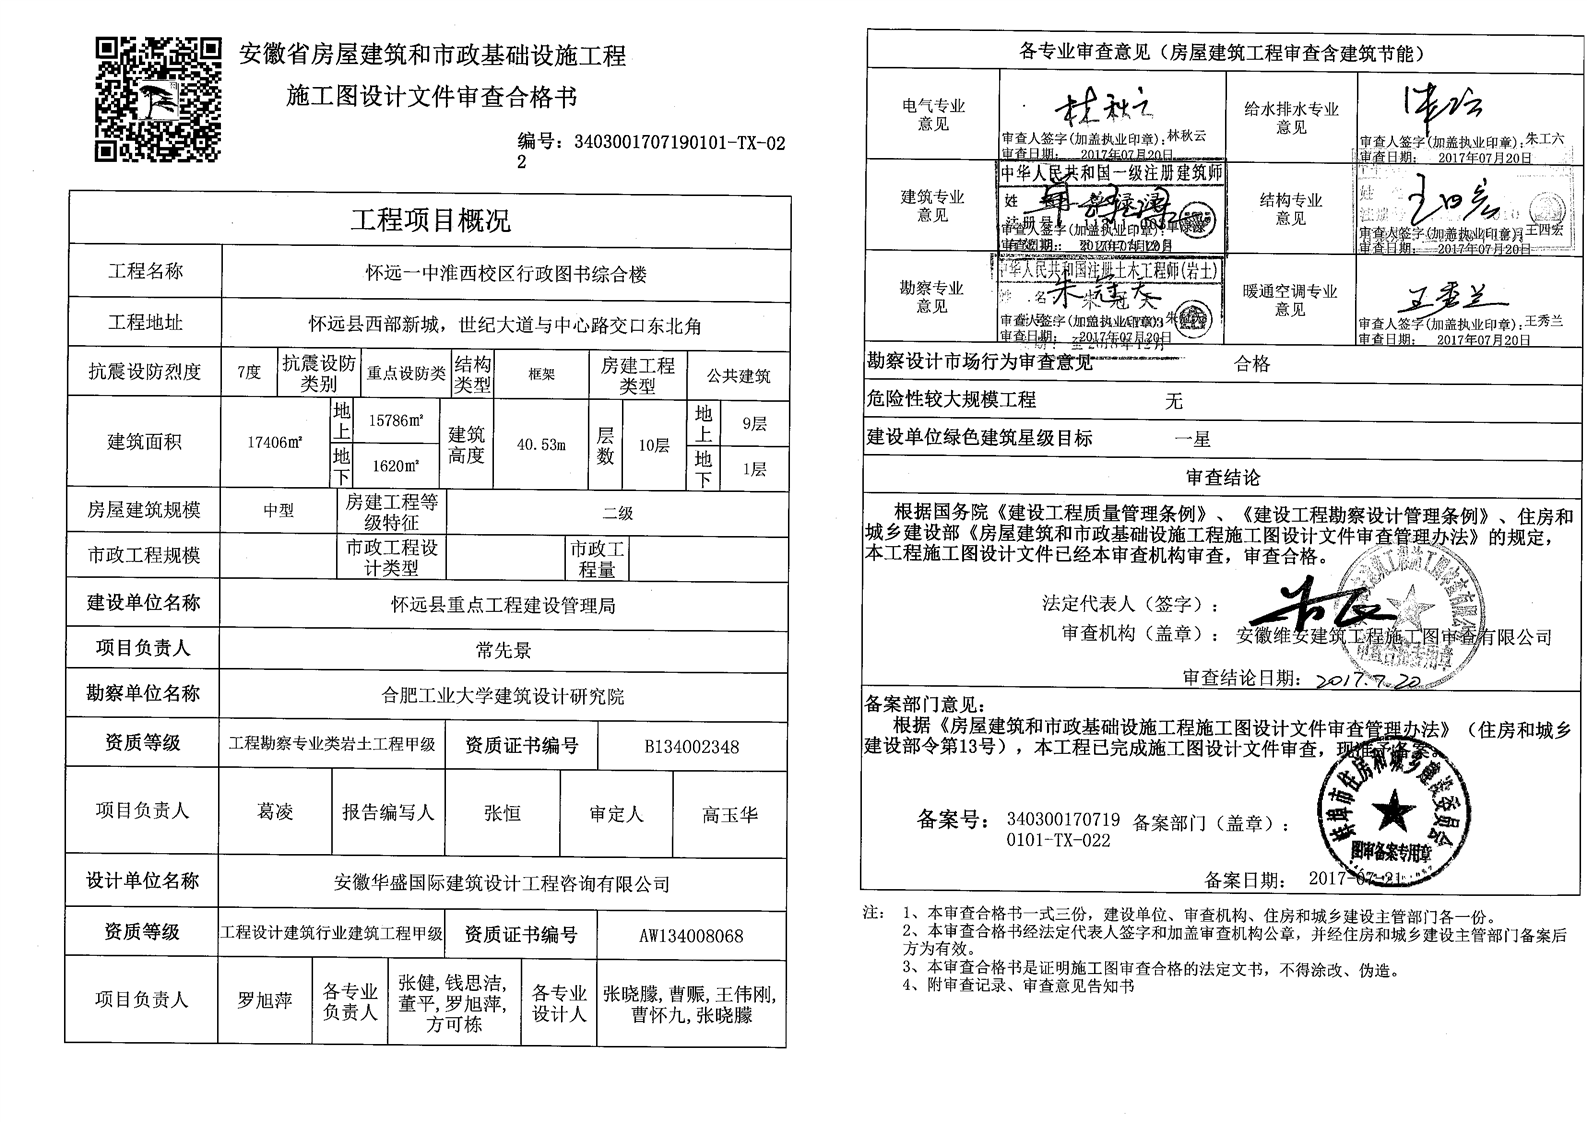 安徽省房屋建筑和市政基础设施工程
施工图设计文件审查合格书
编号：3403001707190101-TX-02
2
工程项目概况
工程名称 怀远一中淮西校区行政图书综合楼
工程地址 怀远县西部新城，世纪大道与中心路交口东北角
抗震设防烈度 7度 抗震设防类别 重点设防类 结构类型 框架 房建工程类型 公共建筑
建筑面积 17406m² 地上 15786m² 地下 1620m² 建筑高度 40.53m 层数 10层 地上 9层 地下 1层
房屋建筑规模 中型 房建工程等级特征 二级
市政工程规模 市政工程设计类型 市政工程量
建设单位名称 怀远县重点工程建设管理局
项目负责人 常先景
勘察单位名称 合肥工业大学建筑设计研究院
资质等级 工程勘察专业类岩土工程甲级 资质证书编号 B134002348
项目负责人 葛凌 报告编写人 张恒 审定人 高玉华
设计单位名称 安徽华盛国际建筑设计工程咨询有限公司
资质等级 工程设计建筑行业建筑工程甲级 资质证书编号 AW134008068
项目负责人 罗旭萍 各专业负责人 张健,钱思洁,董平,罗旭萍,方可栋 各专业设计人 张晓朦,曹赈,王伟刚,曹怀九,张晓朦
各专业审查意见（房屋建筑工程审查含建筑节能）
电气专业意见 林秋云
审查人签字(加盖执业印章):林秋云
审查日期: 2017年07月20日
给水排水专业意见
审查人签字(加盖执业印章):朱工六
审查日期: 2017年07月20日
建筑专业意见
中华人民共和国一级注册建筑师
姓
注册号
审查人签字(加盖执业印章):
审查日期:
结构专业意见 王四宏
审查人签字(加盖执业印章):王四宏
审查日期: 2017年07月20日
勘察专业意见
中华人民共和国注册土木工程师(岩土)
姓 名 朱冠天
审查人签字(加盖执业印章):
审查日期: 2017年07月20日
暖通空调专业意见 王秀兰
审查人签字(加盖执业印章):王秀兰
审查日期: 2017年07月20日
勘察设计市场行为审查意见 合格
危险性较大规模工程 无
建设单位绿色建筑星级目标 一星
审查结论
根据国务院《建设工程质量管理条例》、《建设工程勘察设计管理条例》、住房和
城乡建设部《房屋建筑和市政基础设施工程施工图设计文件审查管理办法》的规定，
本工程施工图设计文件已经本审查机构审查，审查合格。
法定代表人（签字）：
审查机构（盖章）： 安徽维安建筑工程施工图审查有限公司
审查合格专用章
审查结论日期： 2017.7.20
备案部门意见：
根据《房屋建筑和市政基础设施工程施工图设计文件审查管理办法》（住房和城乡
建设部令第13号），本工程已完成施工图设计文件审查，现准予备案。
备案号： 340300170719
0101-TX-022
备案部门（盖章）：
蚌埠市住房和城乡建设委员会
图审备案专用章
备案日期： 2017-07-21
注： 1、本审查合格书一式三份，建设单位、审查机构、住房和城乡建设主管部门各一份。
2、本审查合格书经法定代表人签字和加盖审查机构公章，并经住房和城乡建设主管部门备案后
方为有效。
3、本审查合格书是证明施工图审查合格的法定文书，不得涂改、伪造。
4、附审查记录、审查意见告知书